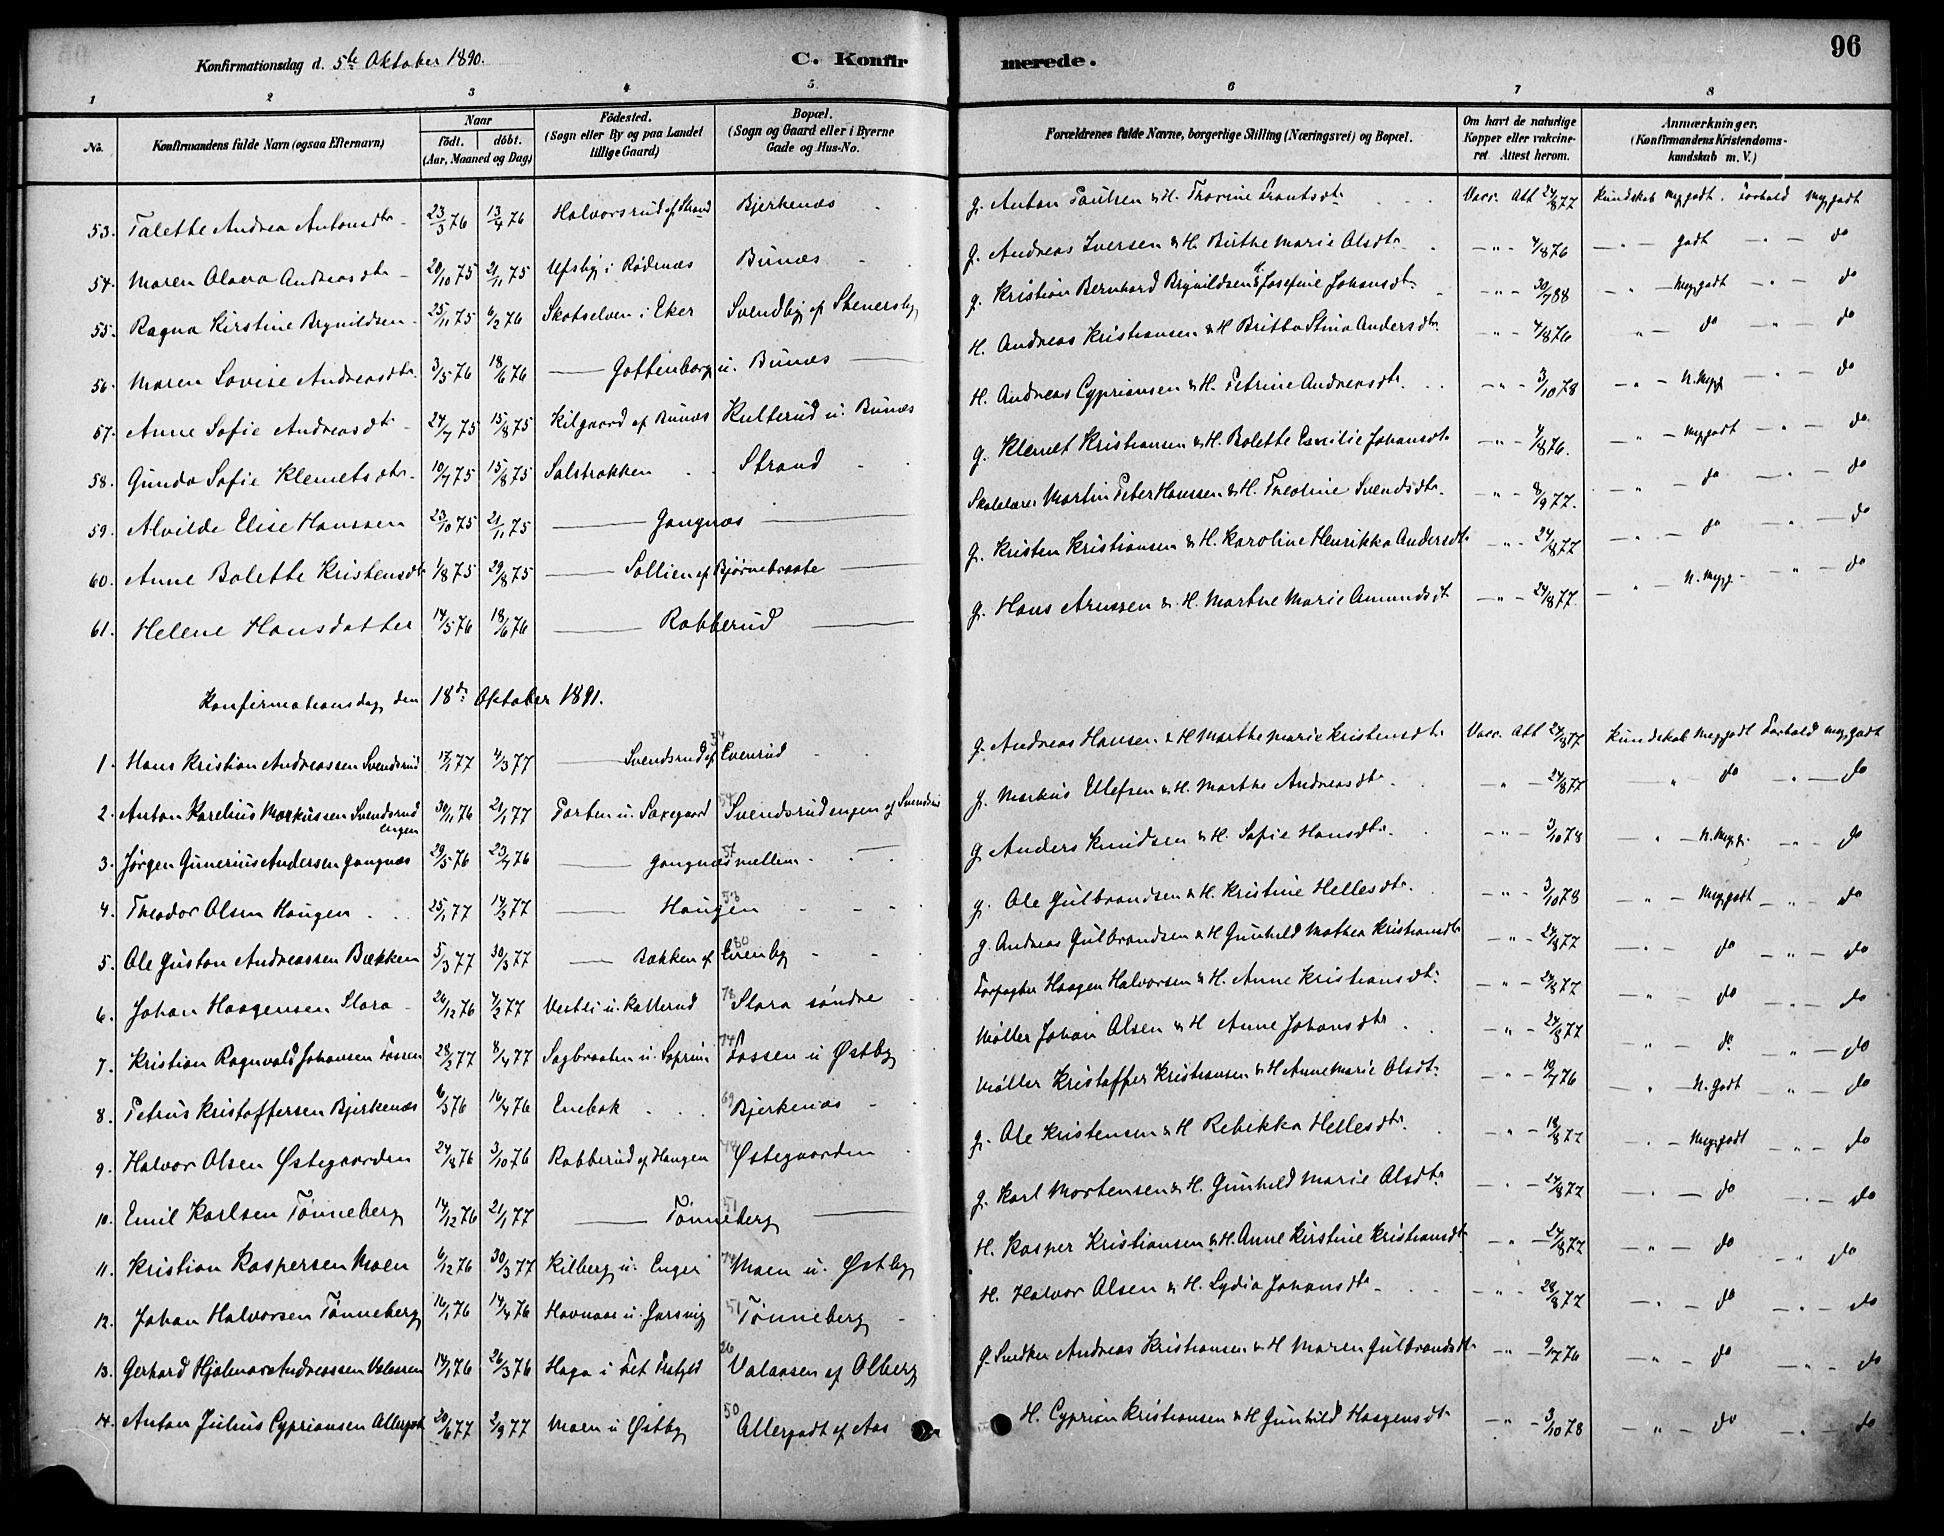 Konfirmationsdag d. 5te Oktober 1890. C. Konfirmerede. 96
1 2 3 4 5 6 7 8
No. Konfirmandens fulde Navn (ogsaa Efternavn) Naar födt. döbt. (Aar, Maaned og Dag) Födested. (Sogn eller By og paa Landet tillige Gaard) Bopæl. (Sogn og Gaard eller i Byerne Gade og Hus-No. Forældrenes fulde Navne, borgerlige Stilling (Næringsvei) og Bopæl. Om havt de naturlige Kopper eller vakcineret. Attest herom. Anmærkninger. (Konfirmandens Kristendomskundskab m. V.)
53. Talette Andrea Antonsdtr 23/3 76 13/4 76 Halvorsrud af Strand Bjerkenæs g. Anton Paulsen & H. Thorine Frantsdtr Vacc. Att 24/8 77 Kundskab megjodt. Forhold megjodt
54. Maren Olava Andreasdtr 20/10 75 21/11 75 Ufsby i Rødenæs Bunæs g. Andreas Iversen & H. Birthe Marie Olsdtr - " - 4/8 76 - " - godt - " - do
55. Ragna Kirstine Brynildsen 25/11 75 6/2 76 Skotselven i Eker Svendby af Stenersby g. Kristian Bernhard Brynildsen & Josefine Johansdtr - " - 30/7 88 - " - Meggodt - " - do
56. Maren Lovise Andreasdtr 3/5 76 18/6 76 — Gottenborg u. Bunæs — H. Andreas Kristiansen & H Britta Stina Andersdtr - " - 4/8 76 " - do - " - do
57. Anne Sofie Andreasdtr 24/7 75 15/8 75 Kilgaard af Bunæs Kulterud u. Bunæs H. Andreas Cypriansen & H. Petrine Andreasdtr - " - 3/10 78 - " - N. Megg - " - do
58. Gunda Sofie Klemetsdtr 10/7 75 15/8 75 Salsbakken Strand g. Klemet Kristiansen & H. Bolette Emilie Johansdtr - " - 4/8 76. " - Meggodt - " - do
59. Alvilde Elise Hanssen 23/10 75 21/11 75 — Gangnæs — Skolelærer Martin Peter Hanssen & H. Theoline Svendsdtr - " - 8/9 77. - " - do - " - do
60. Anne Bolette Kristensdtr 1/8 75 29/8 75 — Sollien af Bjørnebraate — g. Kristen Kristiansen & H. Karoline Henrikka Andersdtr - " - 24/8 77 - " - do - " - do
61. Helene Hansdatter 14/5 76 18/6 76 — Robberud — g. Hans Arnesen & H. Marthe Marie Amundsdtr - " - 24/8 77. - " - N. Megg - " - do
Konfirmationsdag den 18de Oktober 1891.
1. Hans Kristian Andreassen Svendsrud 17/1 77 4/3 77 — Svendsrud af Evenrud g. Andreas Hansen & H Marthe Marie Kristensdtr Vacc. Att 24/8 77 Kundskab Meggodt Forhold meggodt
2. Anton Karelius Markussen Svendsrud engen 30/11 76 21/1 77 Porten u. Saxegaard 54 Svendsrudengen af Svendsrud g. Markus Ulefsen & H. Marthe Andreasdtr - " - 24/8 77 - " - do - " - do
3. Jørgen Gunerius Andersen Gangnæs 29/5 76 23/7 76 — Gangnæs mellem 57 g Anders Knudsen & H. Sofie Hansdtr - " - 3/10 78 - " - N. Megg. - " - do
4. Theodor Olsen Haugen 25/1 77 14/2 77 — Haugen 53 g. Ole Gulbrandsen & H. Kristine Hellesdtr. - " - 3/10 78 - " - Meggodt - " - do
5. Ole Gustav Andreassen Bækken 5/3 77 30/3 77 — Bækken af Evenby 80 g. Andreas Gulbrandsen & H Gunhild Mathea Kristiansdtr - " - 24/8 77 - " - do - " - do
6. Johan Haagensen Slora 26/12 76 4/2 77 Vestli u. Kallerud 78 Slora søndre Forpagter Haagen Halvorsen & H. Anne Kristiansdtr - " - 24/8 77 - " - do - " - do
7. Kristian Ragnvald Johansen Fossen 28/2 77 8/4 77 Sagbraaten u. Soprim 74 Fossen u Østby Møller Johan Olsen & H Anne Johansdtr - " - 24/8 77 - " - do - " - do
8. Petrus Kristoffersen Bjerkenæs 6/3 76 16/4 76 Enebak 69 Bjerkenæs Møller Kristoffer Kristiansen & H Anne Marie Olsdtr - " - 19/7 76 - " - N. Godt " - do
9. Halvor Olsen Østegaarden 24/8 76 3/10 76 Robberud af Haugen 74 Østegaarden g. Ole Kristensen & H Rebekka Hellesdtr " - 18/8 77 - " - Meggodt - " - do
10. Emil Karlsen Tønneberg 14/12 76 21/1 77 — Tønneberg 51 — g. Karl Mortensen & H. Gunhild Marie Olsdtr - " - 24/8 77 - " - do - " - do
11. Kristian Kaspersen Moen 6/12 76 30/3 77 Kilberg u. Enger 74 Moen u. Østby H. Kasper Kristiansen & H. Anne Kirstine Kristiansdtr - " - 24/8 77 - " - do " do
12. Johan Halvorsen Tønneberg 16/1 76 14/4 76 Havnaas u. Garsvig 51 Tønneberg H. Halvor Olsen & H. Lydia Johansdtr - " - 28/8 77 - " - do - " - do
13. Gerhard Hjalmar Andreassen Valaasen 14/1 76 26/3 76 Haga i Fet Prstgld 26 Valaasen af Olberg g. Snedker Andreas Kristiansen & H Maren Gulbrandsdtr - " - 9/7 76 - " - do - " - do
14. Anton Julius Cypriansen Allergodt 20/6 77 2/9 77 Moen u Østby 50 Allergodt af Aas H. Cyprian Kristiansen & H Gunhild Haagensdtr - " - 3/10 78 - " - do - " - do